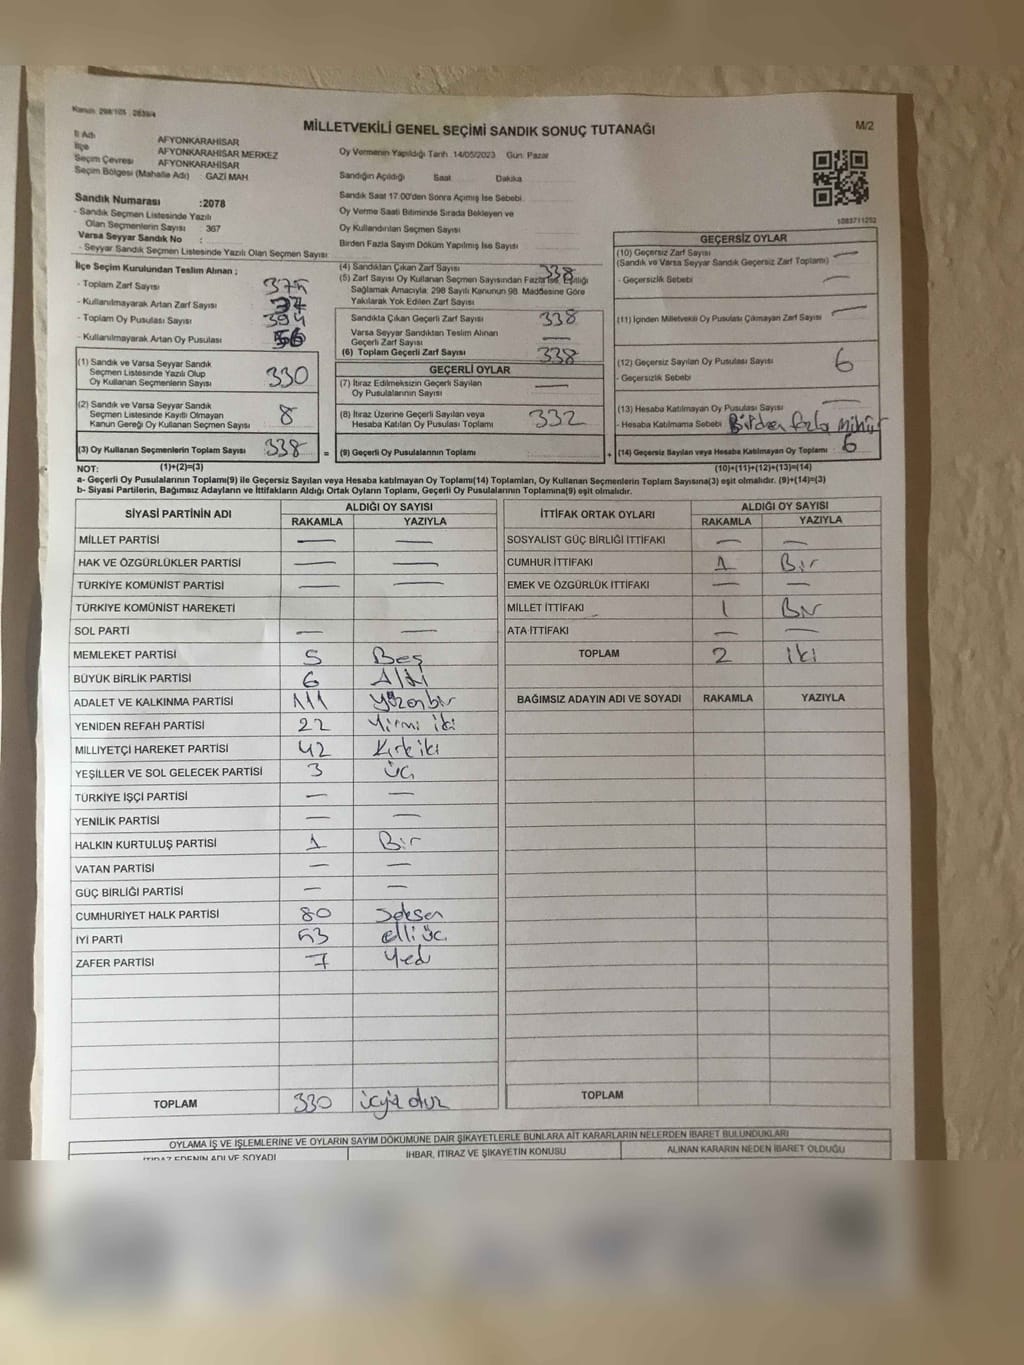 Kanun: 298/105 , 2839/4
MİLLETVEKİLİ GENEL SEÇİMİ SANDIK SONUÇ TUTANAĞI
M/2
İl Adı AFYONKARAHİSAR
İlçe AFYONKARAHİSAR MERKEZ
Seçim Çevresi AFYONKARAHİSAR
Seçim Bölgesi (Mahalle Adı) : GAZİ MAH.
Oy Vermenin Yapıldığı Tarih 14/05/2023 Gün: Pazar
Sandığın Açıldığı Saat Dakika
Sandık Saat 17.00'den Sonra Açılmış İse Sebebi
Oy Verme Saati Bitiminde Sırada Bekleyen ve
Oy Kullandırılan Seçmen Sayısı
Birden Fazla Sayım Döküm Yapılmış İse Sayısı
1083711252
Sandık Numarası :2078
- Sandık Seçmen Listesinde Yazılı
Olan Seçmenlerin Sayısı : 367
Varsa Seyyar Sandık No :
- Seyyar Sandık Seçmen Listesinde Yazılı Olan Seçmen Sayısı
İlçe Seçim Kurulundan Teslim Alınan ;
- Toplam Zarf Sayısı
- Kullanılmayarak Artan Zarf Sayısı
- Toplam Oy Pusulası Sayısı 394
- Kullanılmayarak Artan Oy Pusulası 56
(1) Sandık ve Varsa Seyyar Sandık
Seçmen Listesinde Yazılı Olup
Oy Kullanan Seçmenlerin Sayısı 330
(2) Sandık ve Varsa Seyyar Sandık
Seçmen Listesinde Kayıtlı Olmayan
Kanun Gereği Oy Kullanan Seçmen Sayısı 8
(3) Oy Kullanan Seçmenlerin Toplam Sayısı 338 =
(4) Sandıktan Çıkan Zarf Sayısı 338
(5) Zarf Sayısı Oy Kullanan Seçmen Sayısından Fazla İse, Eşitliği
Sağlamak Amacıyla, 298 Sayılı Kanunun 98. Maddesine Göre
Yakılarak Yok Edilen Zarf Sayısı
Sandıkta Çıkan Geçerli Zarf Sayısı 338
Varsa Seyyar Sandıktan Teslim Alınan
Geçerli Zarf Sayısı —
(6) Toplam Geçerli Zarf Sayısı 338
GEÇERLİ OYLAR
(7) İtiraz Edilmeksizin Geçerli Sayılan
Oy Pusulalarının Sayısı —
(8) İtiraz Üzerine Geçerli Sayılan veya
Hesaba Katılan Oy Pusulası Toplamı 332
(9) Geçerli Oy Pusulalarının Toplamı +
GEÇERSİZ OYLAR
(10) Geçersiz Zarf Sayısı —
(Sandık ve Varsa Seyyar Sandık Geçersiz Zarf Toplamı)
- Geçersizlik Sebebi —
(11) İçinden Milletvekili Oy Pusulası Çıkmayan Zarf Sayısı —
(12) Geçersiz Sayılan Oy Pusulası Sayısı 6
- Geçersizlik Sebebi
(13) Hesaba Katılmayan Oy Pusulası Sayısı —
- Hesaba Katılmama Sebebi Birden fazla mühür
(14) Geçersiz Sayılan veya Hesaba Katılmayan Oy Toplamı 6
NOT: (1)+(2)=(3) (10)+(11)+(12)+(13)=(14)
a- Geçerli Oy Pusulalarının Toplamı(9) ile Geçersiz Sayılan veya Hesaba katılmayan Oy Toplamı(14) Toplamları, Oy Kullanan Seçmenlerin Toplam Sayısına(3) eşit olmalıdır. (9)+(14)=(3)
b- Siyasi Partilerin, Bağımsız Adayların ve İttifakların Aldığı Ortak Oyların Toplamı, Geçerli Oy Pusulalarının Toplamına(9) eşit olmalıdır.
SİYASİ PARTİNİN ADI ALDIĞI OY SAYISI
RAKAMLA YAZIYLA
MİLLET PARTİSİ — —
HAK VE ÖZGÜRLÜKLER PARTİSİ — —
TÜRKİYE KOMÜNİST PARTİSİ — —
TÜRKİYE KOMÜNİST HAREKETİ
SOL PARTİ — —
MEMLEKET PARTİSİ 5 Beş
BÜYÜK BİRLİK PARTİSİ 6 Altı
ADALET VE KALKINMA PARTİSİ 111 Yüzonbir
YENİDEN REFAH PARTİSİ 22 Yirmi iki
MİLLİYETÇİ HAREKET PARTİSİ 42 Kırk iki
YEŞİLLER VE SOL GELECEK PARTİSİ 3 üç
TÜRKİYE İŞÇİ PARTİSİ — —
YENİLİK PARTİSİ — —
HALKIN KURTULUŞ PARTİSİ 1 Bir
VATAN PARTİSİ — —
GÜÇ BİRLİĞİ PARTİSİ — —
CUMHURİYET HALK PARTİSİ 80 Seksen
İYİ PARTİ 53 elli üç
ZAFER PARTİSİ 7 Yedi
TOPLAM 330 üçyüz otuz
İTTİFAK ORTAK OYLARI ALDIĞI OY SAYISI
RAKAMLA YAZIYLA
SOSYALİST GÜÇ BİRLİĞİ İTTİFAKI — —
CUMHUR İTTİFAKI 1 Bir
EMEK VE ÖZGÜRLÜK İTTİFAKI — —
MİLLET İTTİFAKI 1 Bir
ATA İTTİFAKI — —
TOPLAM 2 iki
BAĞIMSIZ ADAYIN ADI VE SOYADI RAKAMLA YAZIYLA
TOPLAM
OYLAMA İŞ VE İŞLEMLERİNE VE OYLARIN SAYIM DÖKÜMÜNE DAİR ŞİKAYETLERLE BUNLARA AİT KARARLARIN NELERDEN İBARET BULUNDUKLARI
İTİRAZ EDENİN ADI VE SOYADI İHBAR, İTİRAZ VE ŞİKAYETİN KONUSU ALINAN KARARIN NEDEN İBARET OLDUĞU